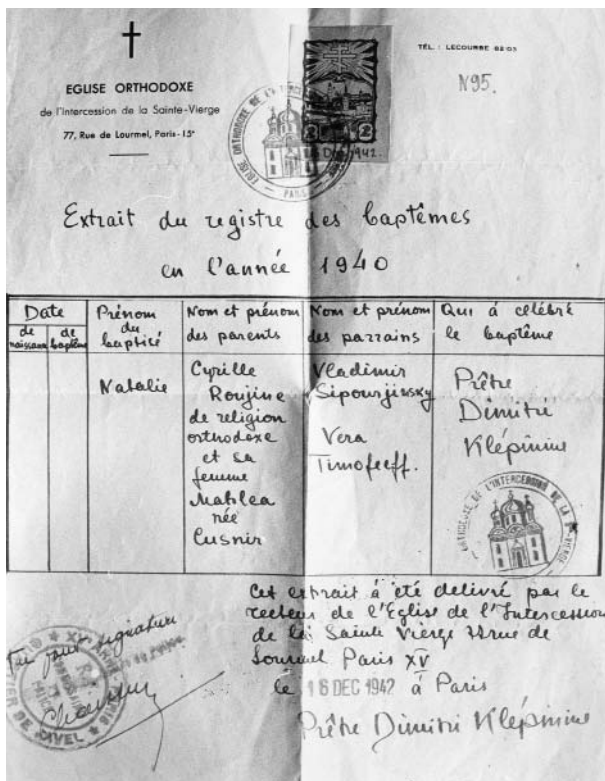 EGLISE ORTHODOXE
de l'Intercession de la Sainte-Vierge
77, Rue de Lourmel, Paris-15e
TÉL. : LECOURBE 82-03
N95.
2 2
1942.
EGLISE ORTHODOXE DE L'INTERCESSION
PARIS
Extrait du registre des baptêmes
en l'année 1940
Date
de naissance
de baptême
Prénom
du
baptisé
Nom et prénom
des parents
Nom et prénom
des parrains
Qui a célébré
le baptême
Natalie
Cyrille
Roujine
de religion
orthodoxe
et sa
femme
Mahlea
née
Cusnir
Vladimir
Sipourjinsky
Vera
Timofeeff.
Prêtre
Dimitri
Klépinine
ORTHODOXE DE L'INTERCESSION DE LA Ste VIERGE
Cet extrait a été delivré par le
recteur de l'Eglise de l'Intercession
de la Sainte Vierge rue de
Lourmel Paris XV
le 16 DEC 1942 à Paris
Prêtre Dimitri Klépinine
Vu pour signature
QUARTIER DE JAVEL